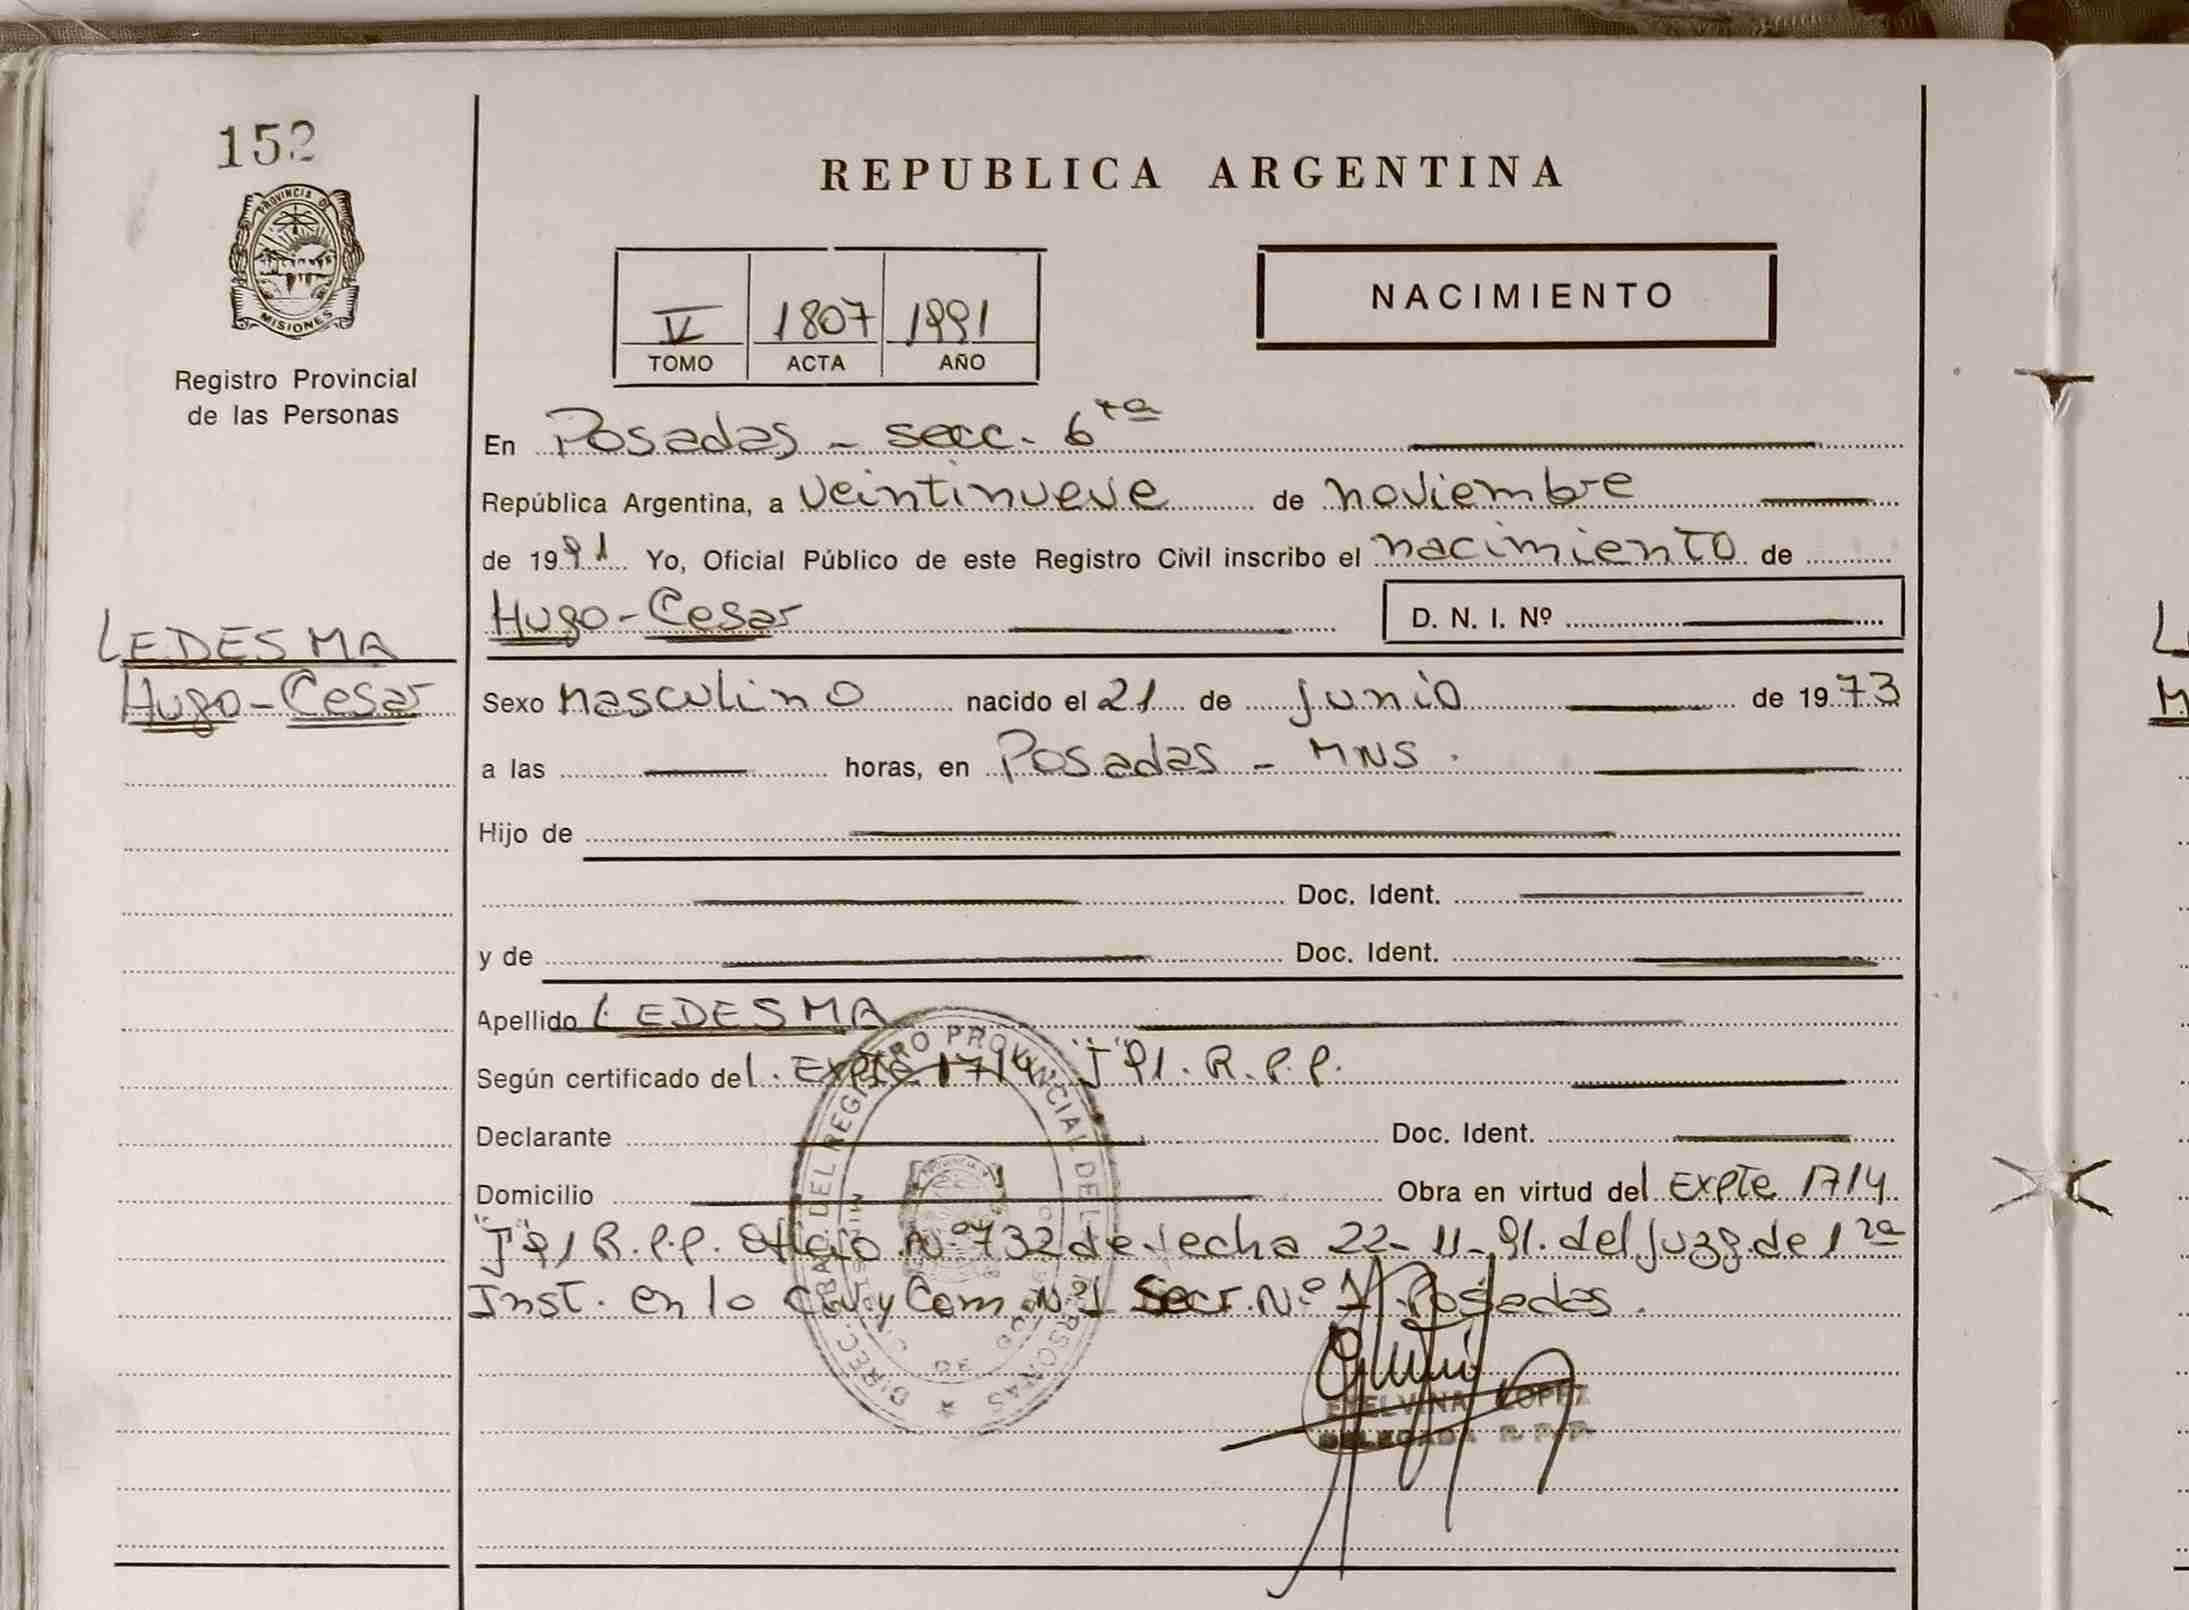 152
PROVINCIA DE
MISIONES
Registro Provincial
de las Personas
REPUBLICA ARGENTINA
V 1807 1991
TOMO ACTA AÑO
NACIMIENTO
En Posadas - secc. 6ta
República Argentina, a veintinueve de noviembre
de 1991 Yo, Oficial Público de este Registro Civil inscribo el nacimiento de
Hugo-Cesar D. N. I. Nº
LEDESMA
Hugo-Cesar
Sexo masculino nacido el 21 de junio de 1973
a las horas, en Posadas - MNS.
Hijo de
Doc. Ident.
y de Doc. Ident.
Apellido LEDESMA
Según certificado del. Expte 1714 "J" 91. R.P.P.
Declarante Doc. Ident.
Domicilio Obra en virtud del Expte 1714
"J" 91 R.P.P. Oficio Nº 732 de fecha 22-11-91. del Juzg. de 1ra
Inst. en lo Civ. y Com. Nº 1 Secr. Nº 1 Posadas.
DIREC. GRAL. DEL REGISTRO PROVINCIAL DE LAS PERSONAS
LOPEZ
DELEGADA R.P.P.